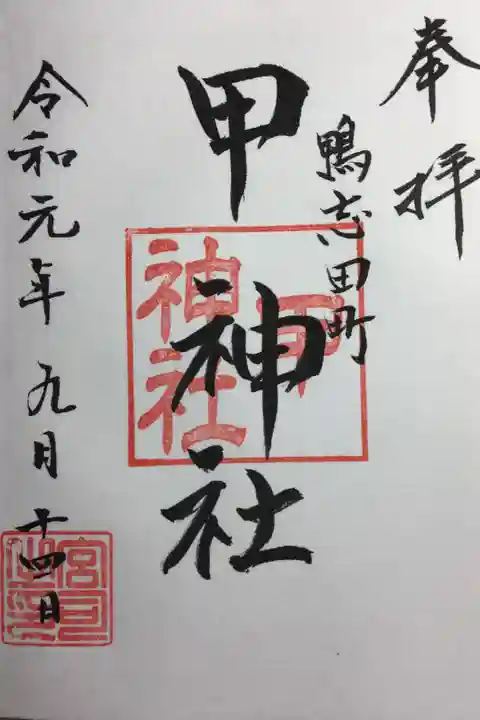 奉拝
鴨志田町
甲神社
令和元年九月十四日
甲
神社
宮司之印